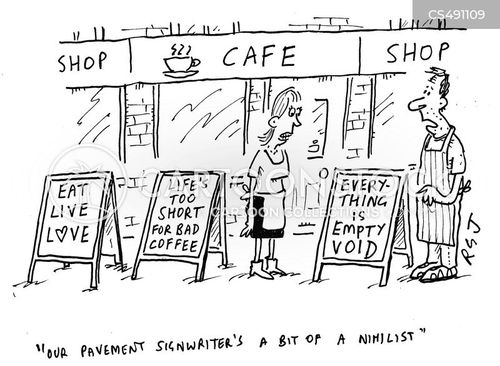 CS491109
SHOP
CAFE
SHOP
EAT
LIVE
LOVE
LIFE'S
TOO
SHORT
FOR BAD
COFFEE
EVERY-
THING
IS
EMPTY
VOID
RGJ
"OUR PAVEMENT SIGNWRITER'S A BIT OF A NIHILIST"